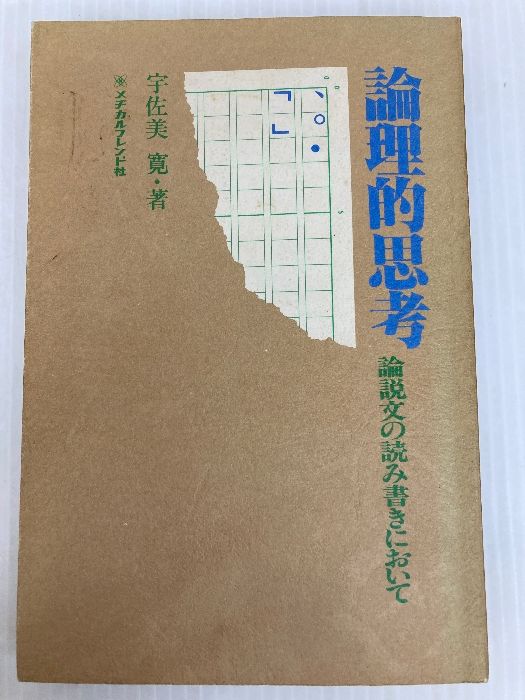 論理的思考
論説文の読み書きにおいて
、。・
「」
宇佐美 寛・著
メヂカルフレンド社